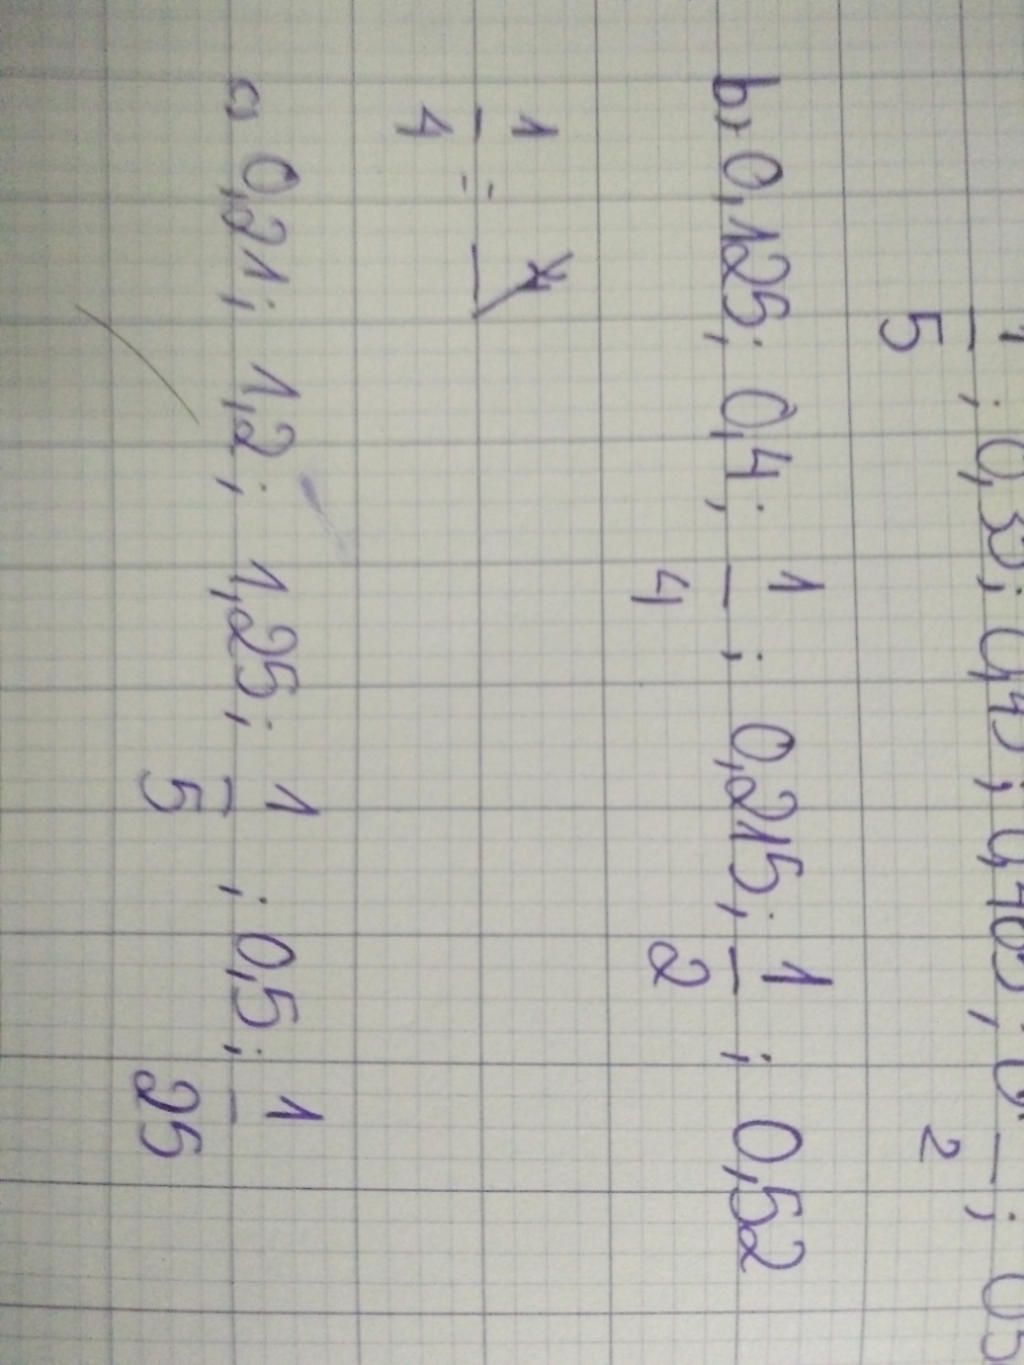 1/5 ; 0,35; 0,45; 0,485; 1/2 ; 05
b) 0,125; 0,4; 1/4 ; 0,215; 1/2 ; 0,52
1/4 =
c) 0,21; 1,2; 1,25; 1/5 ; 0,5; 1/25